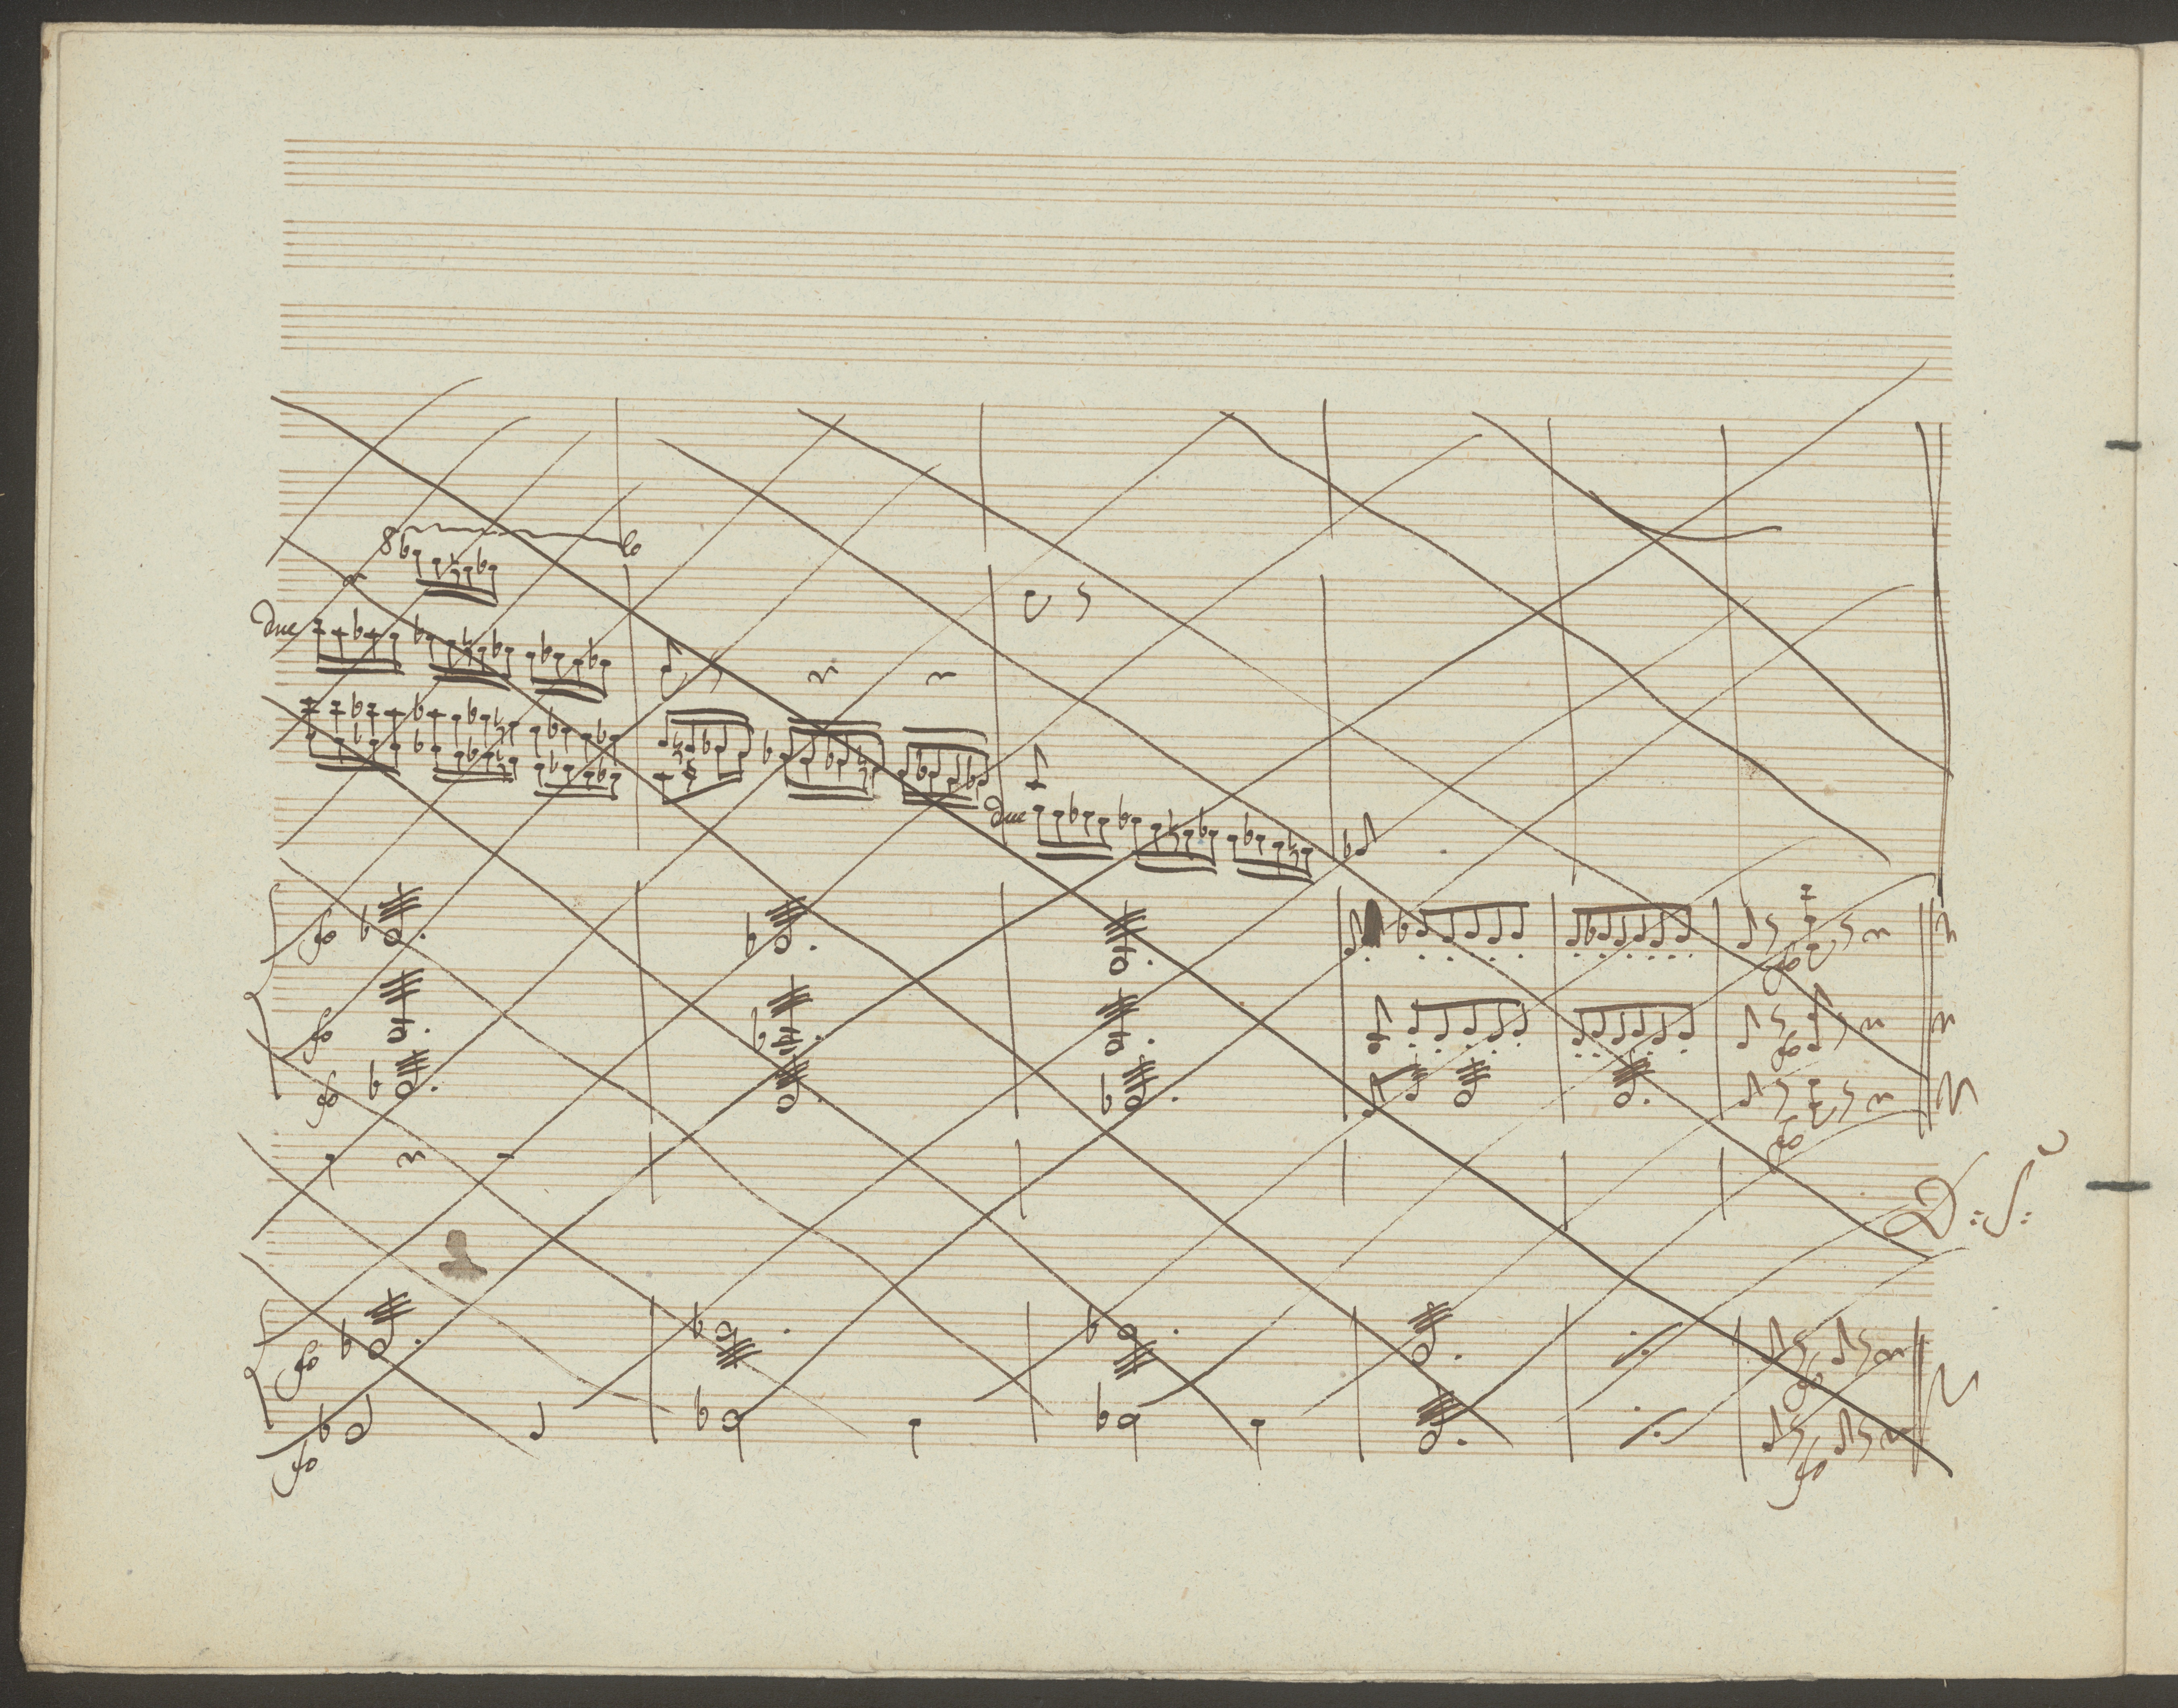 8 lo
due
due
fo
fo
fo
D.: S.:
fo
fo
fo
fo
fo
fo